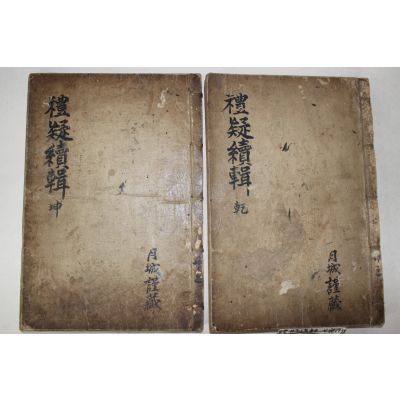 禮疑續輯 乾
月城謹藏
禮疑續輯 坤
月城謹藏